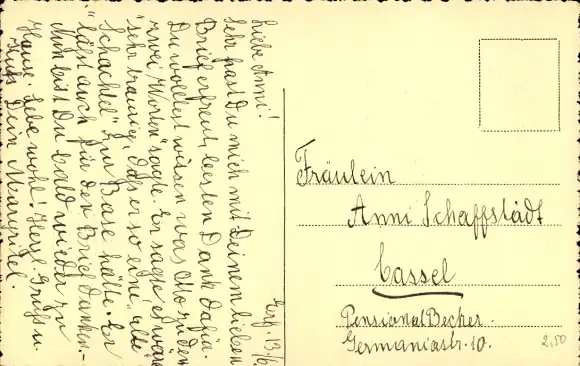 Erf. 13/6.
Liebe Anni!
Sehr hast Du mich mit Deinem lieben
Brief erfreut, besten Dank dafür.
Du wolltest wissen was Otto zu den
zwei Worten sagte. Er sagte es wäre
"sehr traurig, daß er so eine "alte
Schachtel" zur Base hätte. Er
läßt auch für den Brief danken. -
Nun bist Du bald wieder zu
Hause. Lebe wohl! Herzl. Gruß u.
Kuß Dein Margritel.
Fräulein
Anni Schaffstädt
Cassel
Pensionat Becker.
Germaniastr. 10.
2,50